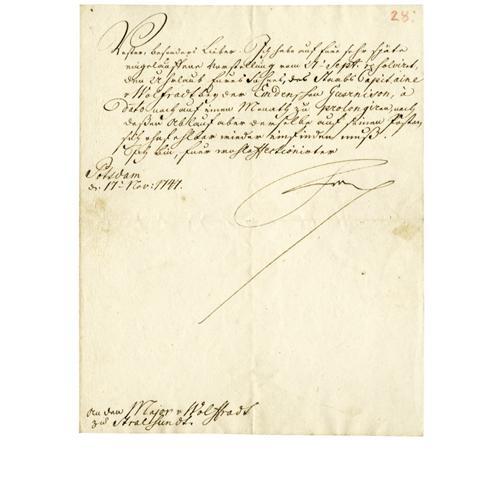 28.
Vester, besonders Lieber. Ich habe auf Eur sehr späte
eingelauffene Vorstellung vom 27. Sept. resolviret,
den Uhrlaub Eures Sohnes, des Staabs Capitaine
v Wolfradt bey der Emden schen Guarnison, à
Dato noch auf einen Monath zu prolongiren; nach
deßen Ablauf aber derselbe auf seinen Posten
sich ohnfehlbar wieder einfinden muß.
Ich bin, Euer wohl affectionirter
Potsdam
d. 17t Nov: 1747.
An den Major v Wolffradt
zu Stralsundt.